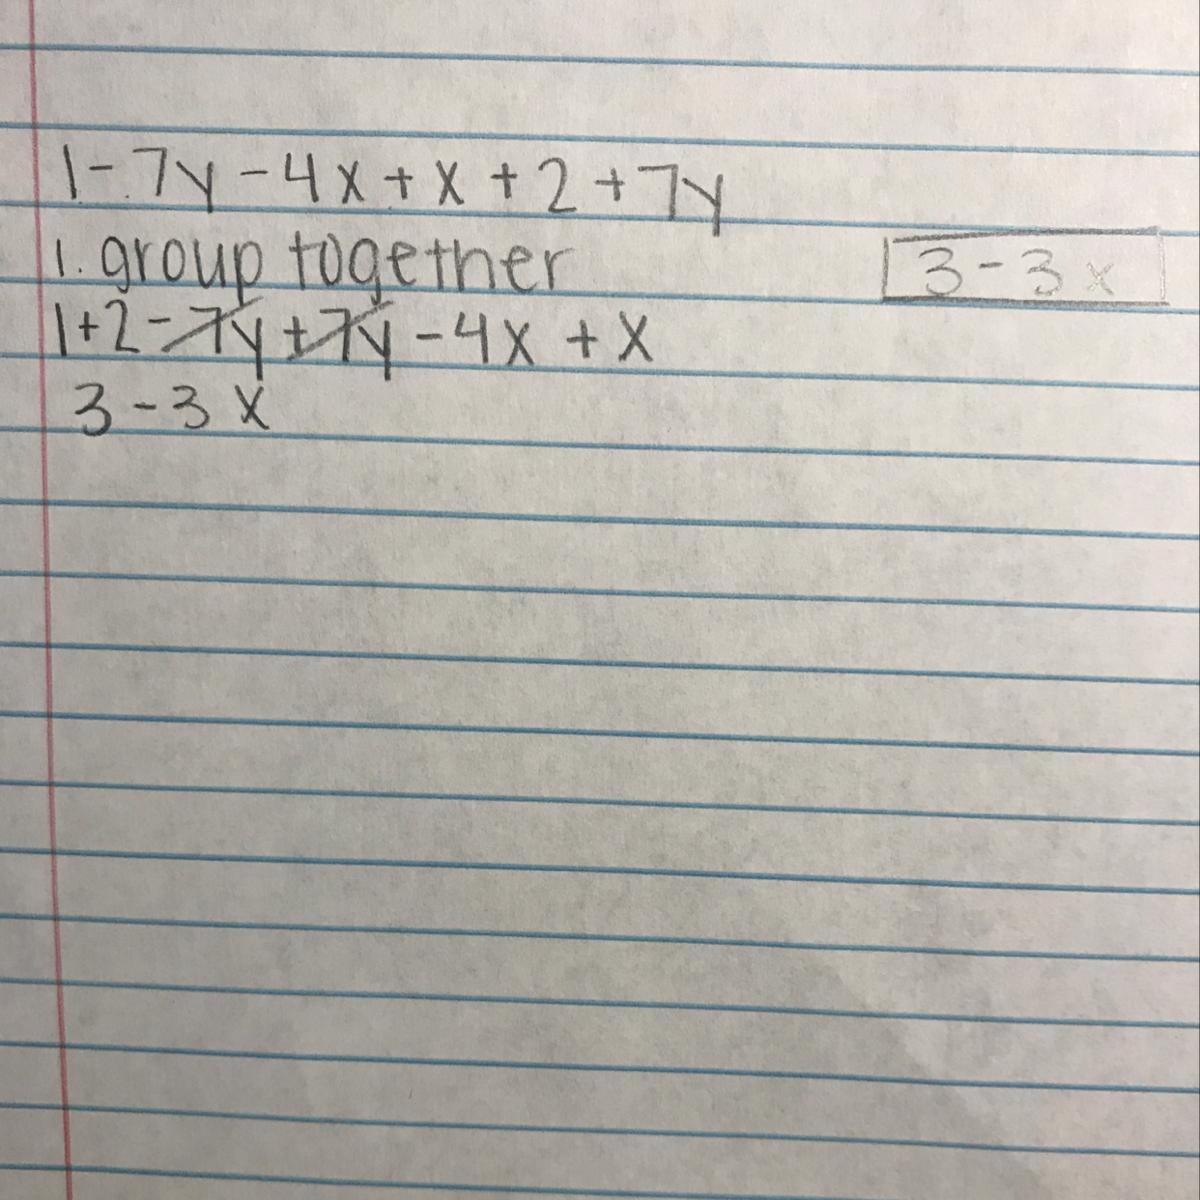 1 - 7y - 4x + x + 2 + 7y
1. group together
3 - 3x
1 + 2 - 7y + 7y - 4x + x
3 - 3x